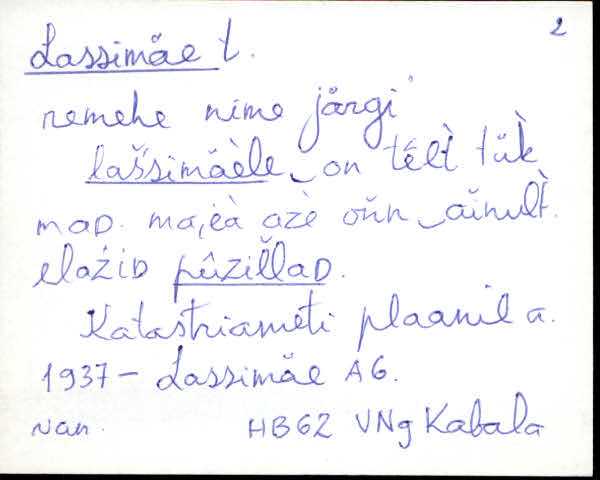 2
Lassimäe t.
nemehe nime järgi
lašsimäèle on tēlt tük
maD. ma,eà azè oňn aĭnult.
elaźiD pûzillaD.
Katastriameti plaanil a.
1937 - Lassimäe A6.
van. HB62 VNg Kabala